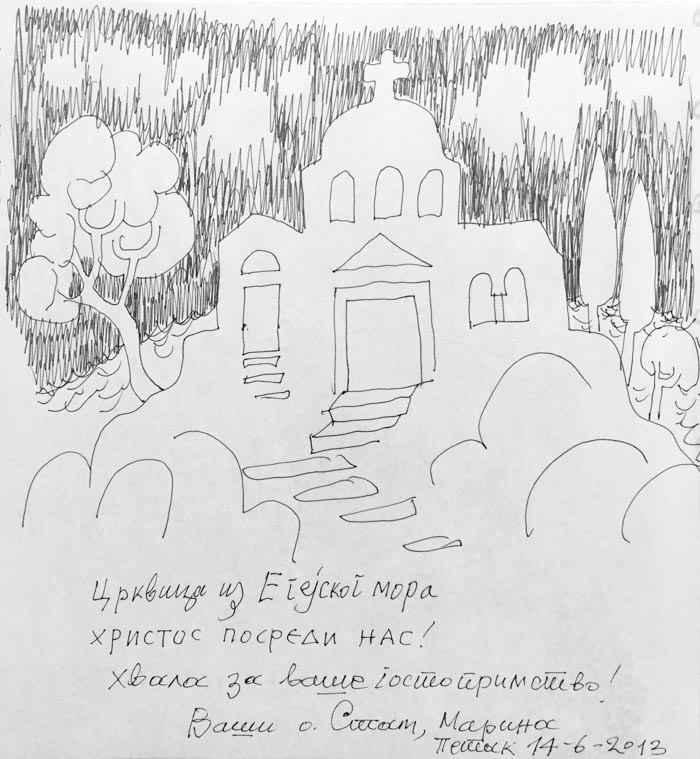 Црквица из Егејског мора
ХРИСТОС ПОСРЕДИ НАС!
Хвала за ваше гостопримство!
Ваши о. Стат, Марина
Петак 14-6-2013